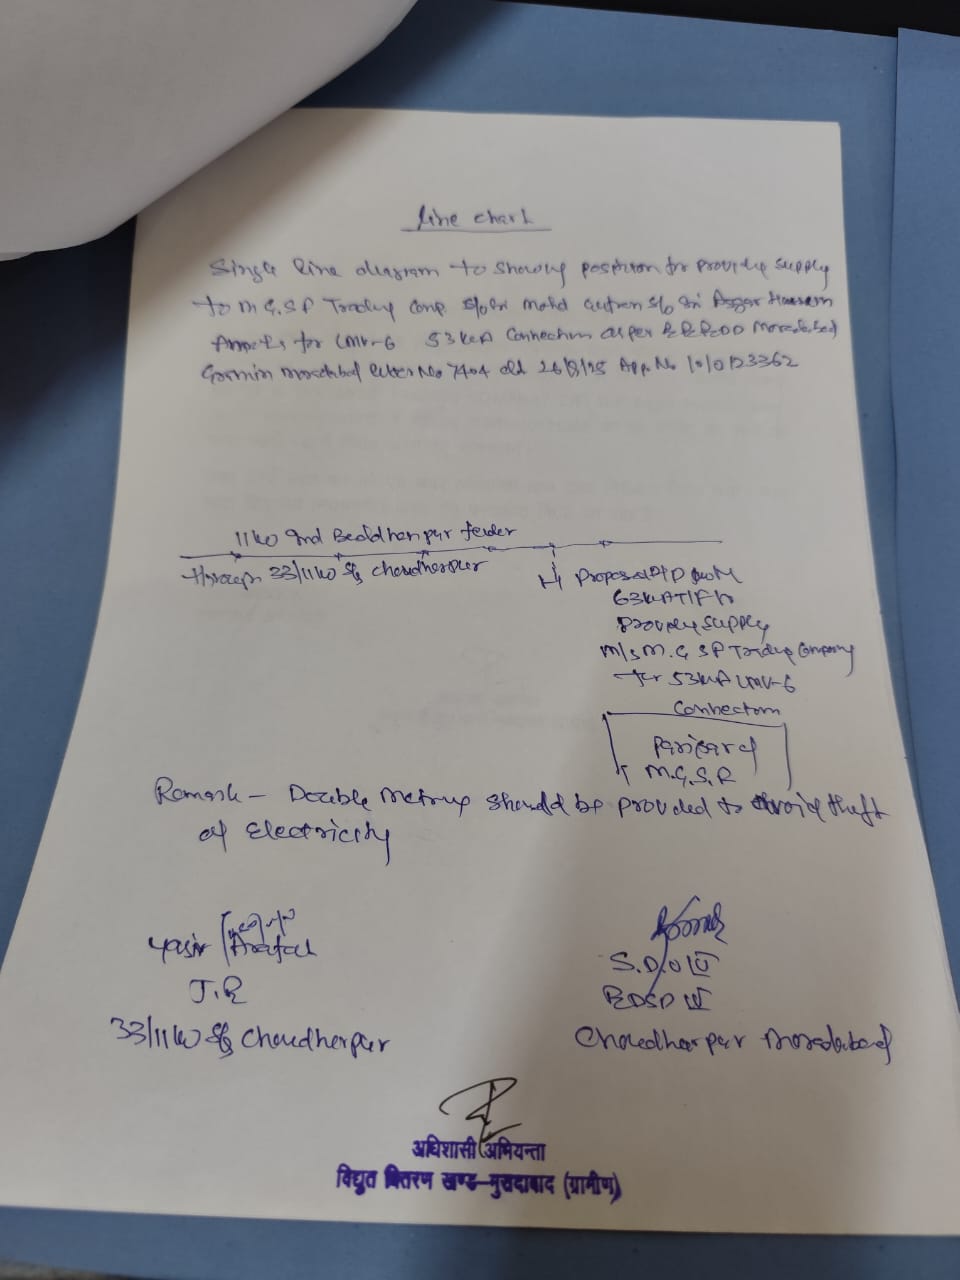 line chart
Single line diagram to showing position for providing supply
to M.G.S.P Trading Comp. Mohd s/o Sri Asgar Hussain
for LMV-6 53 KVA Connection as per Moradabad
letter No 7404 dt 26/8/25 App. No
11 KV 2nd feeder
through 33/11 KV S/S Chaudherpur
Proposed
63 KVA T/F to
Providing supply
M/s M.G.S.P Trading Company
for 53 KVA LMV-6
Connection
Parisar of
M.G.S.P
Remark - Double Metring should be provided to avoid theft
of Electricity
Yasir Arafat
J.E
33/11 KV S/S Chaudherpur
S.D.O
EDSD
Chaudharpur Moradabad
अधिशासी अभियन्ता
विद्युत वितरण खण्ड-मुरादाबाद (ग्रामीण)